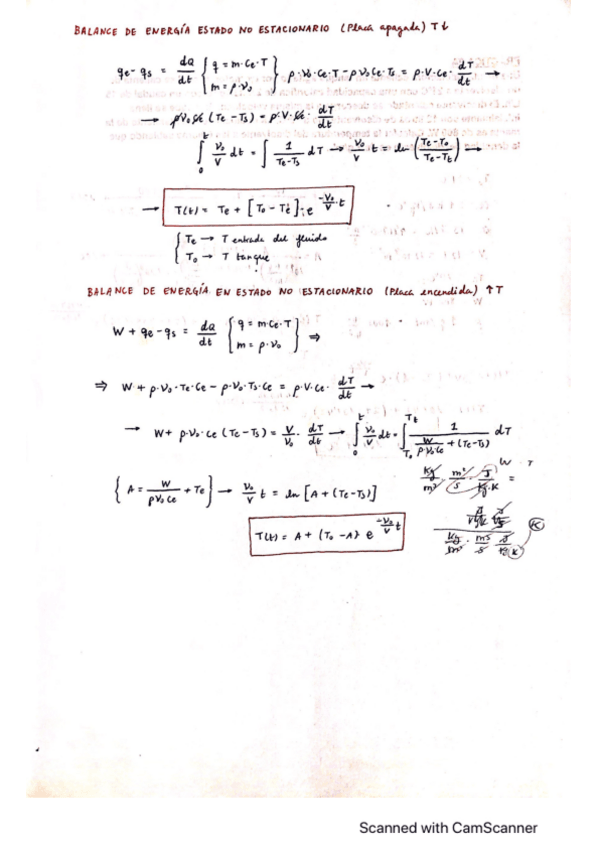 BALANCE DE ENERGÍA ESTADO NO ESTACIONARIO (Placa apagada) T↓
qe - qs = dQ/dt { q = m·Ce·T ; m = ρ·V̇o } ρ·V̇o·Ce·T - ρV̇oCe·Ts = ρ·V·Ce· dT/dt →
→ ρV̇oCe (Te - Ts) = ρ·V·Ce· dT/dt
∫₀ᵗ V̇o/V dt = ∫ 1/(Te-Ts) dT → V̇o/V t = ln ((Te-To)/(Te-Tt)) →
→ T(t) = Te + [To - Te]·e^(-V̇o/V·t)
{ Te → T entrada del fluido
To → T tanque
BALANCE DE ENERGÍA EN ESTADO NO ESTACIONARIO (Placa encendida) ↑T
W + qe - qs = dQ/dt { q = m·Ce·T ; m = ρ·V̇o } ⇒
⇒ W + ρ·V̇o·Te·Ce - ρ·V̇o·Ts·Ce = ρ·V·Ce· dT/dt →
→ W + ρ·V̇o·Ce (Te-Ts) = V/V̇o · dT/dt → ∫₀ᵗ V̇o/V dt = ∫_To^Tt 1/(W/(ρV̇oCe) + (Te-Ts)) dT
{ A = W/(ρV̇oCe) + Te } → V̇o/V t = ln [A + (Te-Ts)]
kg/m³ · m³/s · J/(kg·K) =
T(t) = A + (To - A) e^(-V̇o/V t)
kg/m³ · m³/s · J/(kg K)
K
Scanned with CamScanner